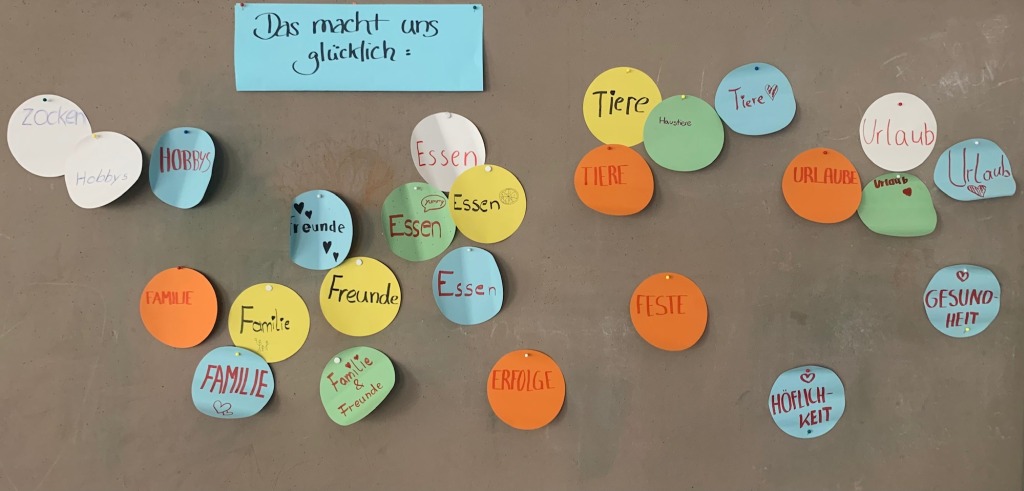 Das macht uns
glücklich:
Zocken
Hobbys
HOBBYS
Essen
Essen
yummy
Essen
Essen
Freunde
Freunde
FAMILIE
Familie
FAMILIE
Familie
&
Freunde
Tiere
Haustiere
Tiere
TIERE
Urlaub
URLAUBE
Urlaub
Urlaub
FESTE
ERFOLGE
GESUND-
HEIT
HÖFLICH-
KEIT